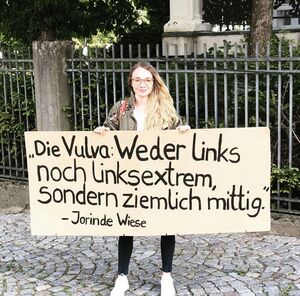 „Die Vulva: Weder links
noch linksextrem,
sondern ziemlich mittig.“
– Jorinde Wiese